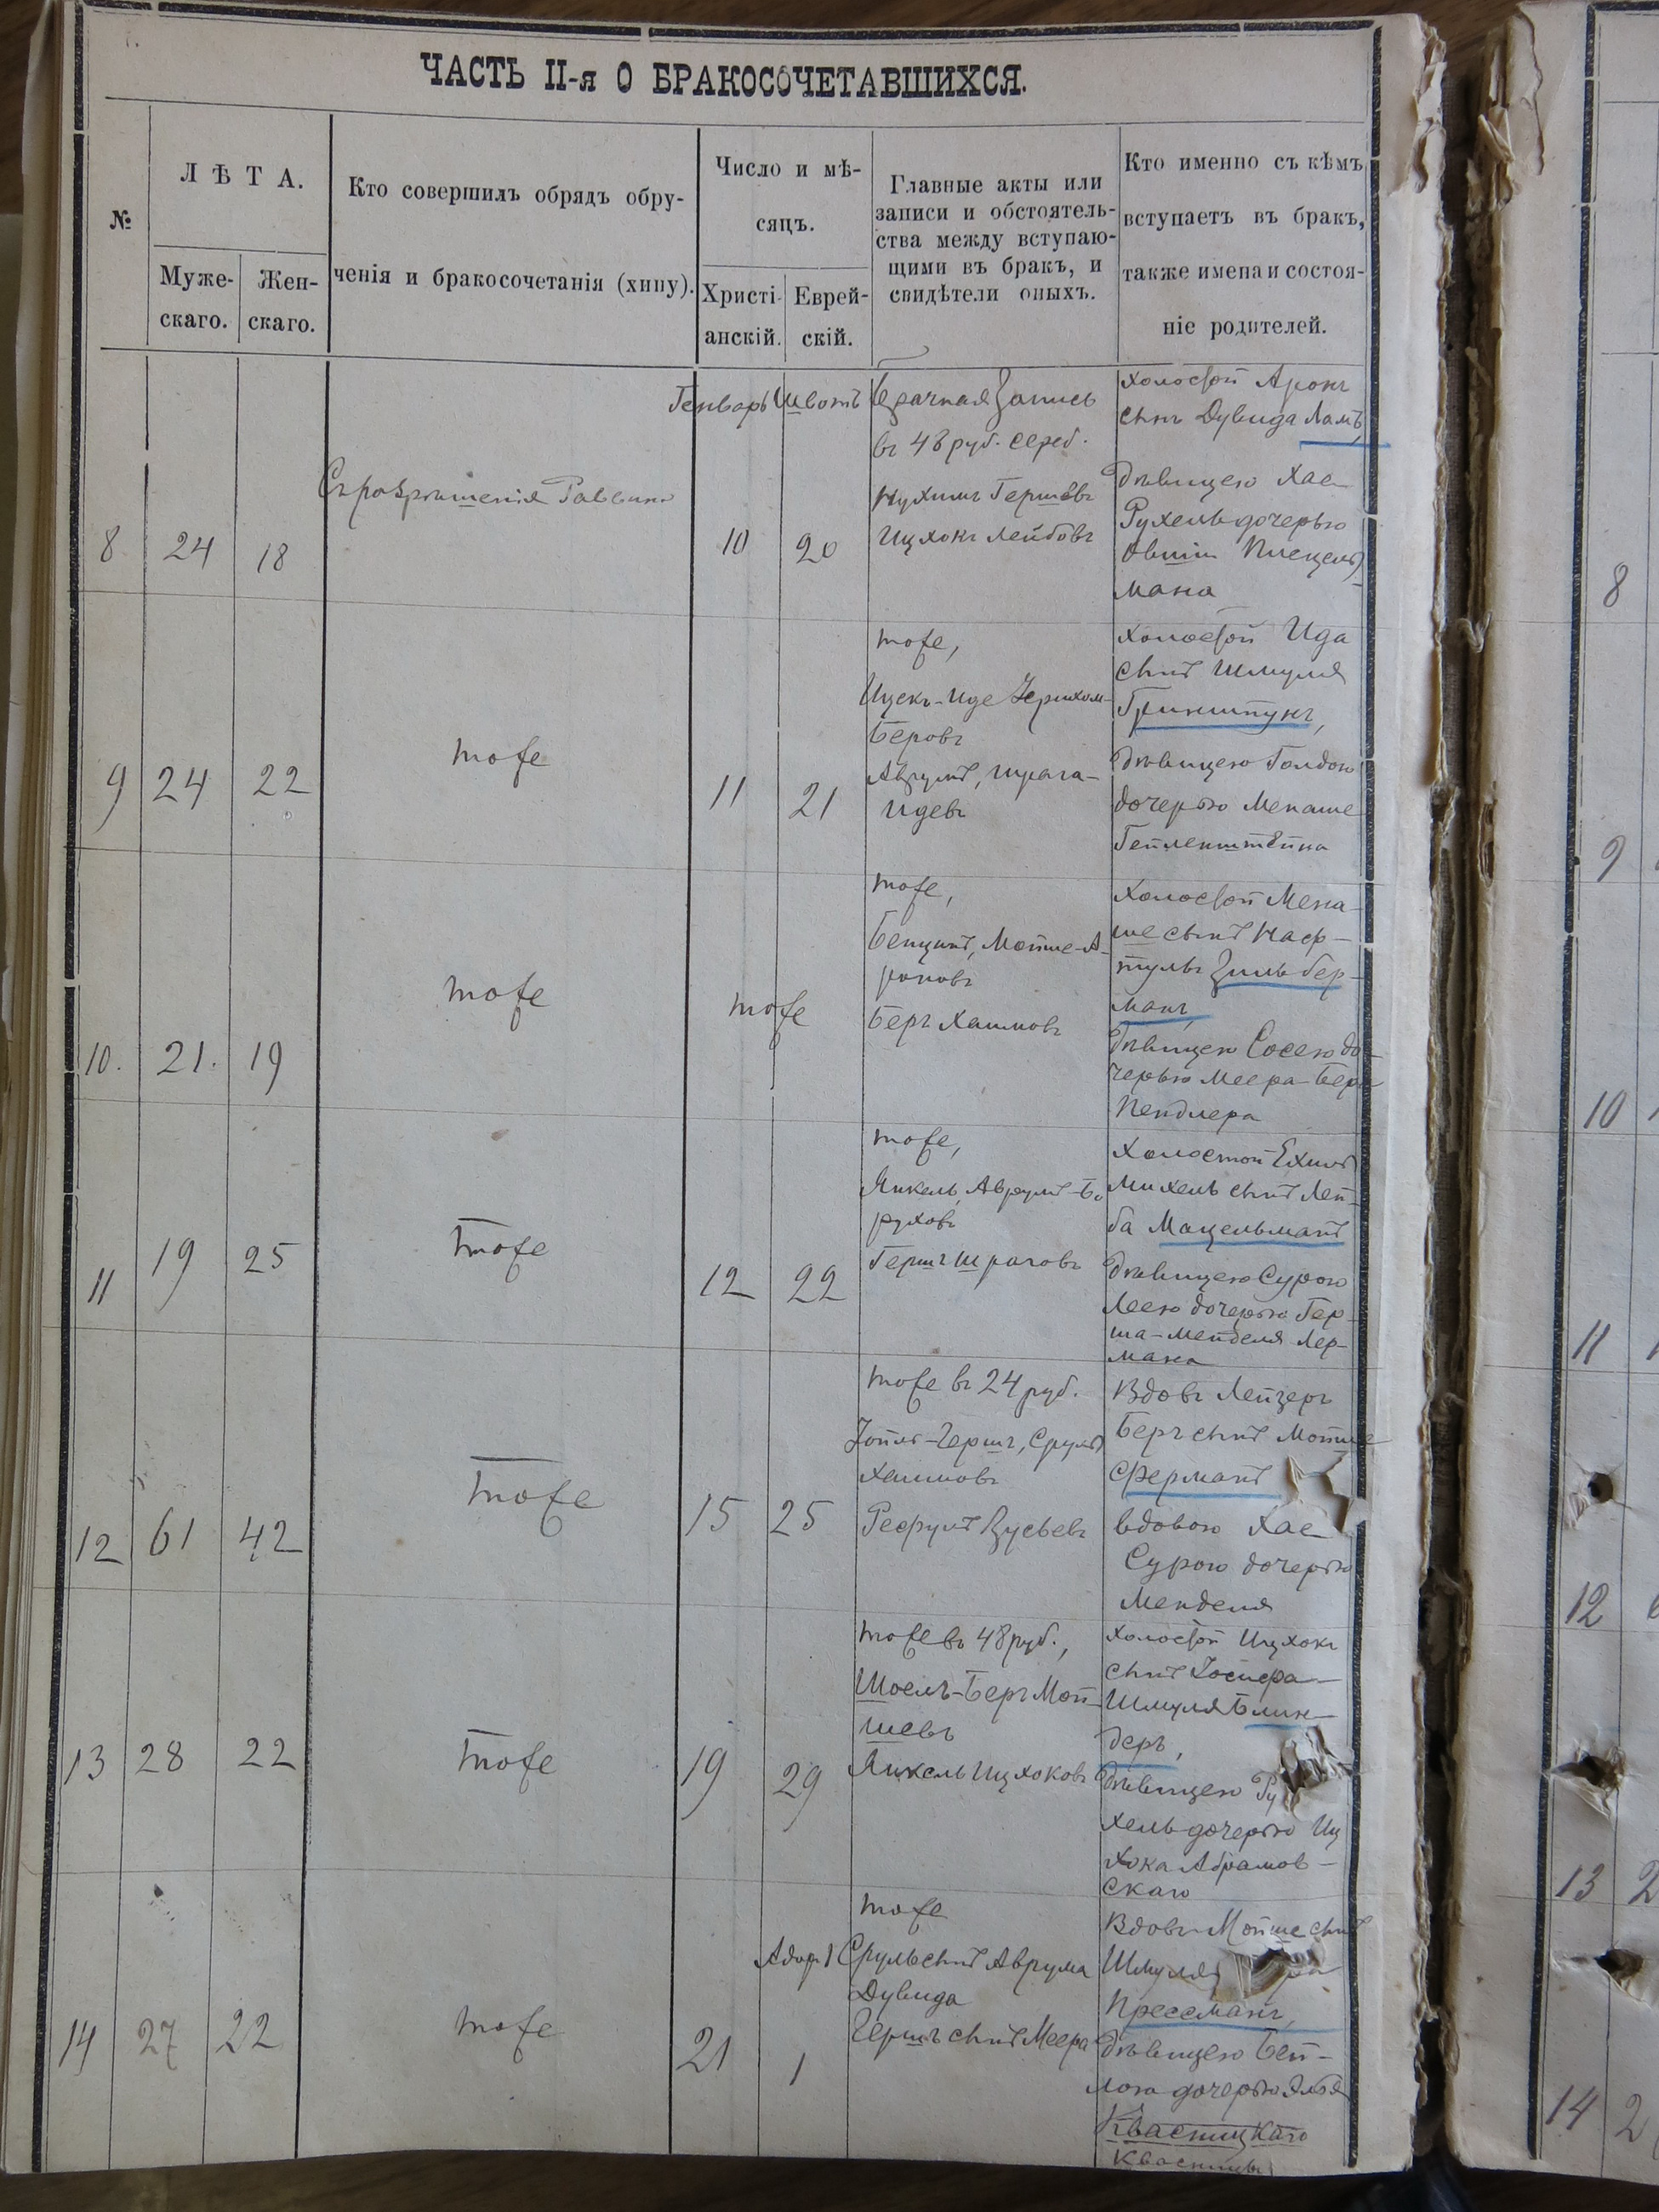 ЧАСТЬ II-я О БРАКОСОЧЕТАВШИХСЯ.
№
ЛѢТА.
Муже-
скаго.
Жен-
скаго.
Кто совершилъ обрядъ обру-
ченія и бракосочетанія (хипу).
Число и мѣ-
сяцъ.
Христі-
анскій.
Еврей-
скій.
Главные акты или
записи и обстоятель-
ства между вступаю-
щими въ бракъ, и
свидѣтели оныхъ.
Кто именно съ кѣмъ
вступаетъ въ бракъ,
также имена и состоя-
ніе родителей.
8
24
18
Съ разрѣшенія Раввина
Генварь
10
Шватъ
20
Брачная запись
въ 48 руб. сереб.
Нухимъ Гершевъ
Ицхокъ Лейбовъ
холостой Аронъ
сынъ Дувида Ламъ,
дѣвицею Хае
Рухель дочерью
Овшіи
мана
9
24
22
тоже
11
21
тоже,
Ицекъ-Иде
Беровъ
Аврумъ, Шрага-
Идевъ
холостой Ида
сынъ Шмуля
Гринштукъ,
дѣвицею Голдою
дочерью Менаше
Гепленштейна
10.
21.
19
тоже
тоже
тоже,
Бенцинъ, Мойше-А-
роновъ
Беръ Хаимовъ
холостой Мена-
ше сынъ Наф-
тулъ Зильбер-
манъ,
дѣвицею Сосею до-
черью Меера-Бера
Пендлера
11
19
25
тоже
12
22
тоже,
Янкель, Аврумъ-Бо
руховъ
Гершъ Шраговъ
холостой Ехилъ
Михель сынъ Лей-
ба Мацельманъ
дѣвицею Сурою
Леею дочерью Гер-
ша-Менделя Лер-
мана
12
61
42
тоже
15
25
тоже въ 24 руб.
Гершъ, Сруль
Хаимовъ
Рефулъ Зусьевъ
Вдовъ Лейзеръ
Беръ сынъ Мойше
Ферманъ
вдовою Хае
Сурою дочерью
Менделя
13
28
22
тоже
19
29
тоже въ 48 руб.,
Шоелъ-Беръ Мой-
шевъ
Янкель Ицхоковъ
холостой Ицхокъ
сынъ Іосифа-
Шмуля Блин-
деръ,
дѣвицею Ру
хель дочерью Иц
хока Абрамов-
скаго
14
27
22
тоже
21
Адаръ 1
1
тоже
Сруль сынъ Аврума
Дувида
Гершъ сынъ Меера
Вдовъ Мойше сынъ
Шмуля
Прессманъ,
дѣвицею Бей-
лою дочерью
Квастицкаго
8
9
10
11
12
13
2
14
2